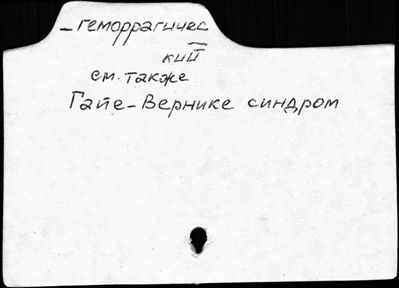 – геморрагичес
кий
см. также
Гайе-Вернике синдром